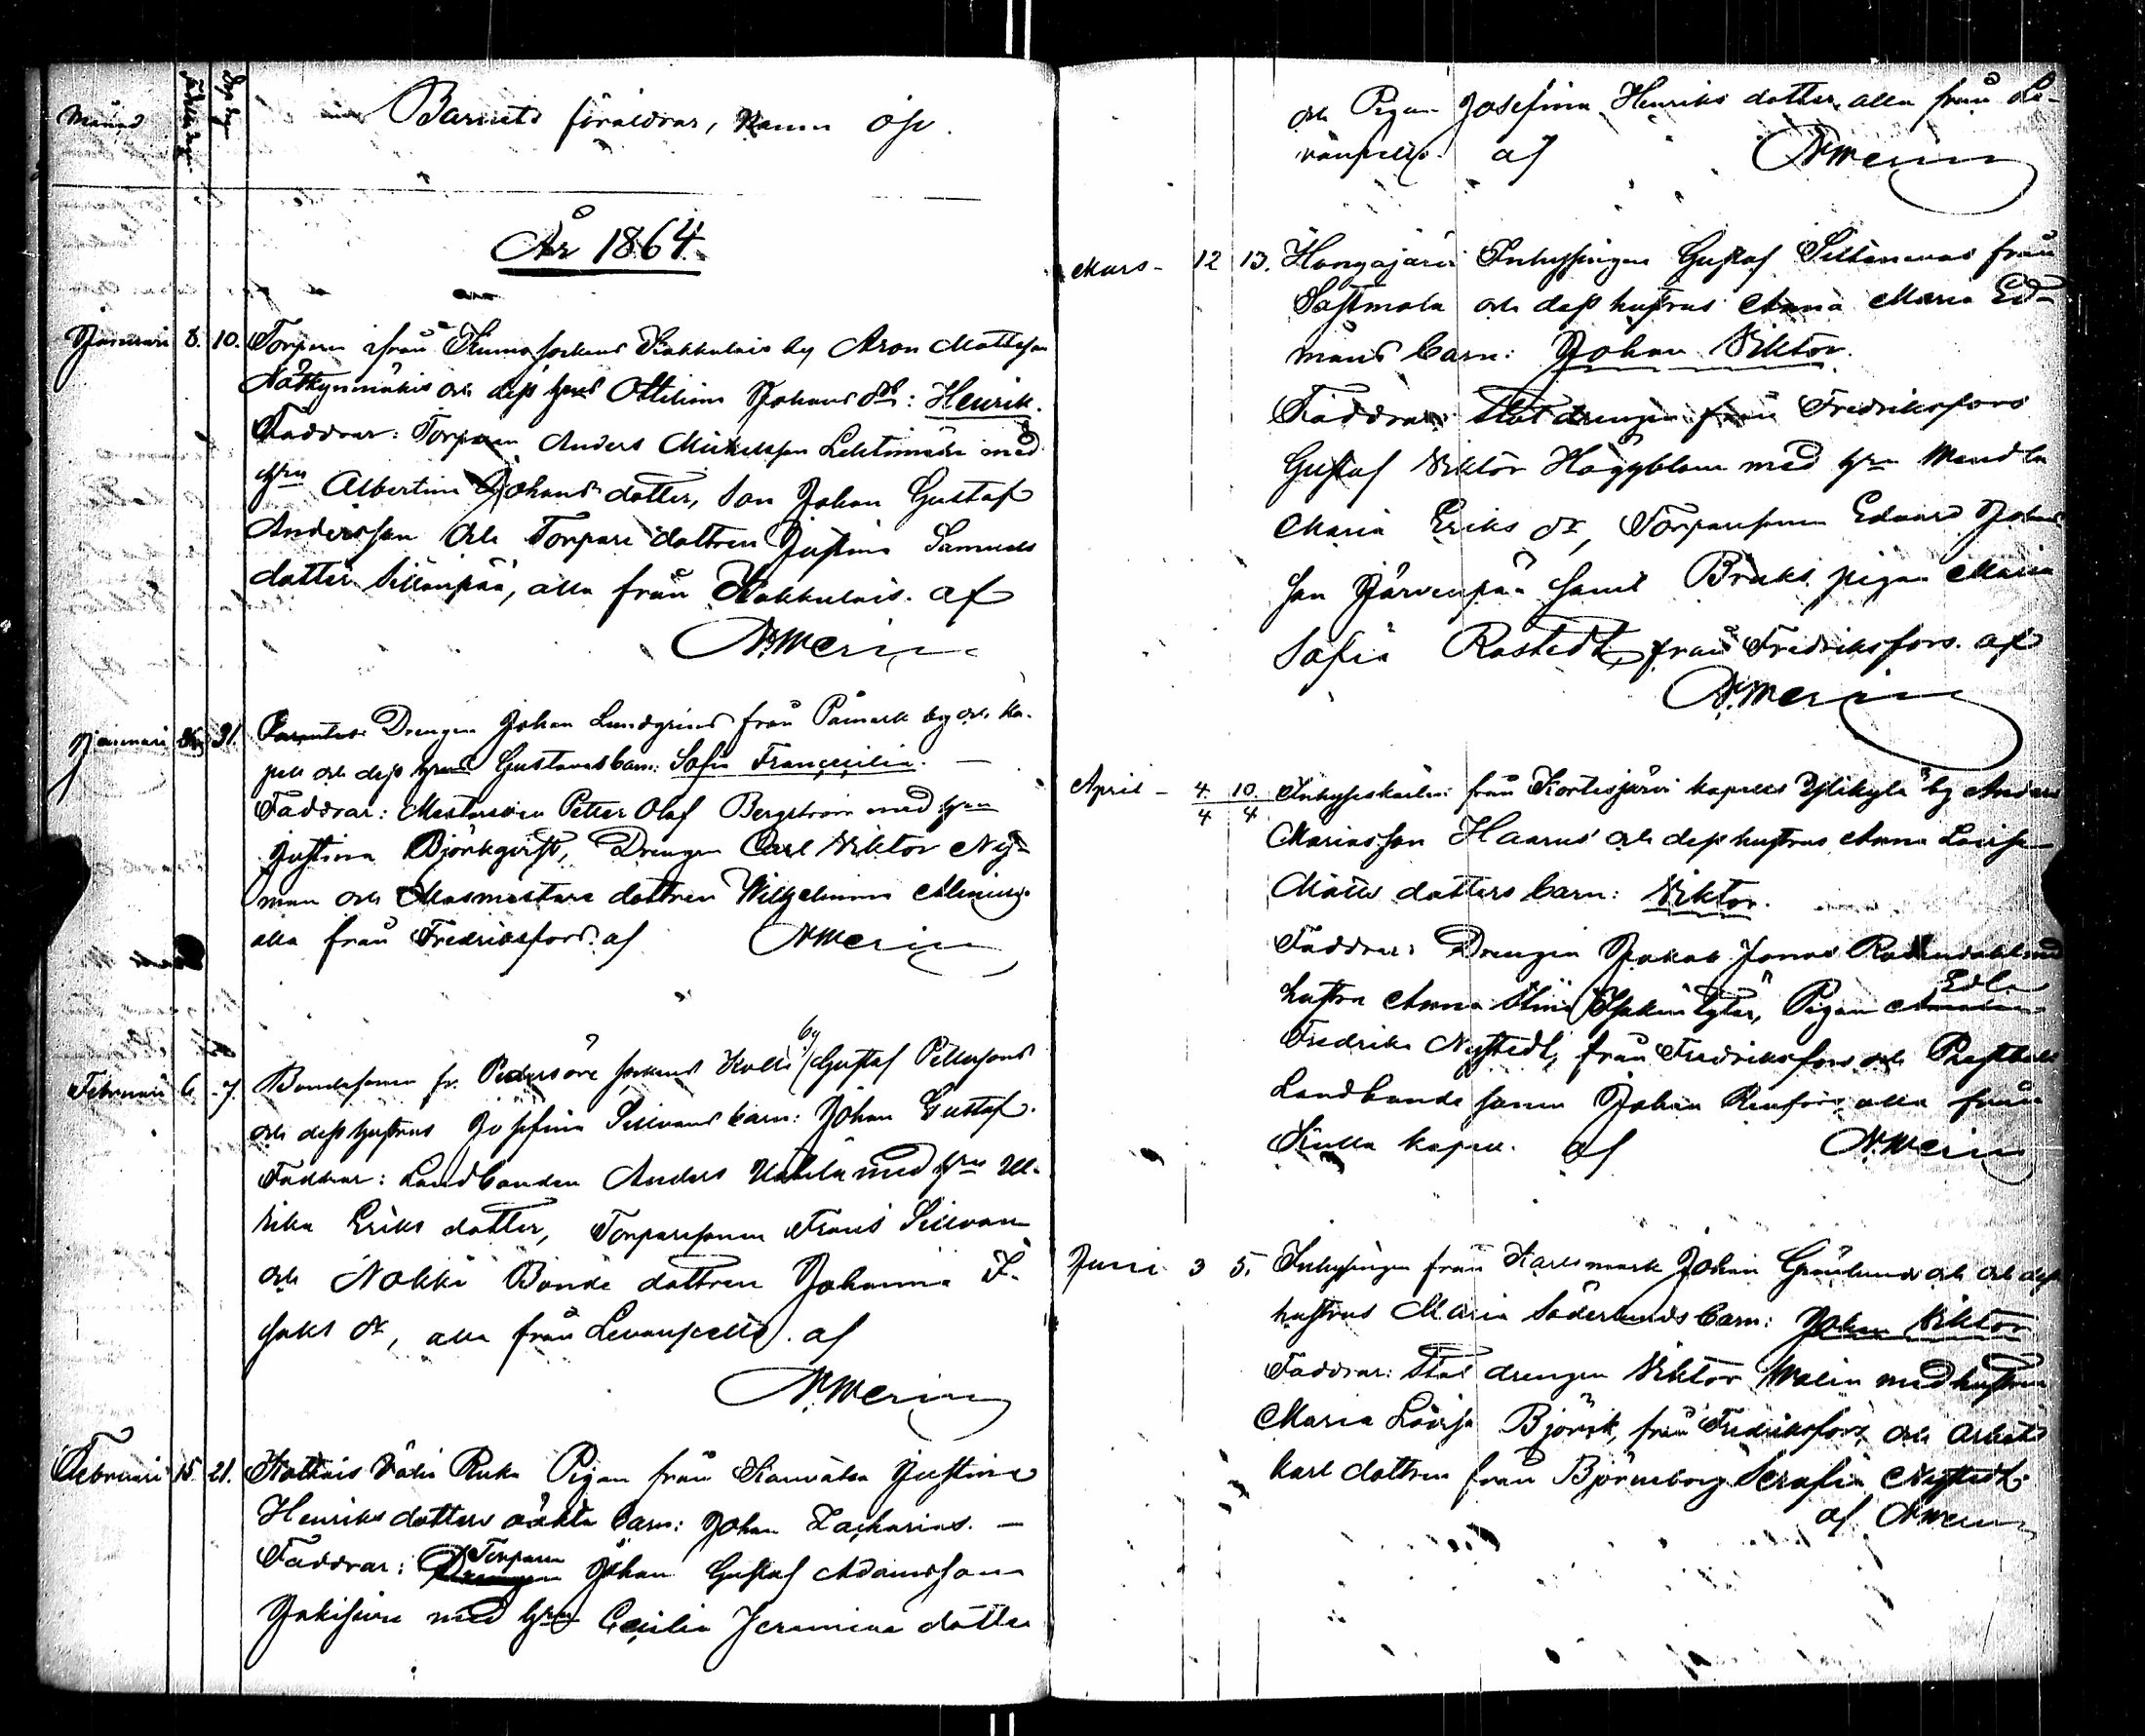 Månad
Födelse dag
Dop dag
Barnets föräldrar, namn osv.
År 1864.
Januari 8. 10. Torparn ifrån Kiumo sockens Kakkulais by Aron Mattsson
och dess hrus Ottilina Johans dr: Henrik.
Faddrar: Torparen Anders Mickelsson med
hrun Albertina Johans dotter, Son Johan Gustaf
Andersson och Torpare dottren Justina Samuels
dotter Sillanpää, alla från Kakkulais. af
N. Merin
Januari 31. Drengen Johan Lundgrens från Påmark by och ka-
pell och dess hrus Gustavas barn: Sofia Franciscilia.
Faddrar: Petter Olof Bergström med hrun
Justina Björkqvist, Drengen Carl Viktor Ny-
man och Masmestare dottren Wilhelmina
alla från Fredriksfors. af N. Merin
Februari 6. 7. Bondesonen fr. Pedersöre sockens Kolli by Gustaf Pettersons
och dess hustrus Josefina Sillvans barn: Johan Gustaf.
Faddrar: Landbonden Anders med hru Ul-
rika Eriks dotter, Torparesonen Frans Sillvan
och Nokki Bonde dottren Johanna I-
saks dr, alla från Levanpelto. af
N. Merin
Februari 15. 21. Pigan från Justina
Henriks dotters oäkta barn: Johan Zacharias.
Faddrar: Torparen Johan Gustaf Adamsson
med hrun Cecilia Jeremiae dotter
och Pigan Josefina Henriks dotter, alla från Le-
vanpelto. af N. Merin
Mars - 12 13. Hongajärvi Inhysingen Gustaf från
Sastmola och dess hustrus Anna Maria Ed-
mans barn: Johan Viktor.
Faddrar: Statdrengen från Fredriksfors
Gustaf Viktor Häggblom med hru Wendla
Maria Eriks dr, Torparesonen Edvard Johans
son Järvenpää samt Bruks pigan Maria
Sofia Rostedt, från Fredriksfors. af
N. Merin
April - 4. 10. Inhyseskarlen från Kortesjärvi kapells Ylikylä by Anders
4 4
Mariasson Haarus och dess hustrus Anna Lovisa
Matts dotters barn: Viktor.
Faddrar: Drengen Jakob Jonas med
hustru Anna Stina Pigan Edla
Fredrika Nystedt, från Fredriksfors och
Landbonde sonen Johan Renfors, alla från
Kulla kapell. af N. Merin
Juni 3 5. Inhysingen från Karlsmark Johan Grönlunds och och dess
hustrus Maria Söderlunds barn: Johan Viktor
Faddrar: Stat drengen Viktor Malin med hustrun
Maria Lovisa Björk, från Fredriksfors, och arbets
karl dottren från Björneborg Serafia Nystedt.
af N. Merin